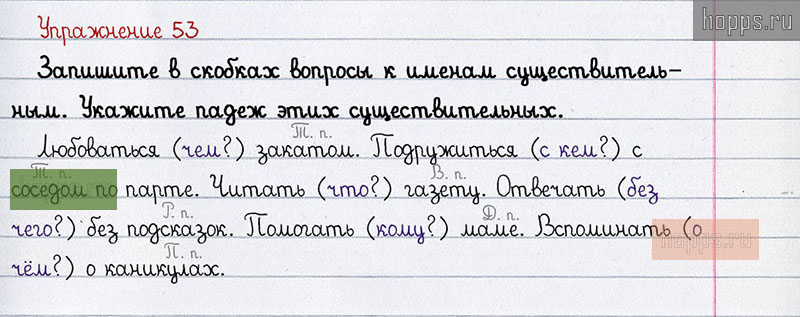 hopps.ru
Упражнение 53
Запишите в скобках вопросы к именам существитель-
ным. Укажите падеж этих существительных.
Т. п.
Любоваться (чем?) закатом. Подружиться (с кем?) с
Т. п. В. п.
соседом по парте. Читать (что?) газету. Отвечать (без
Р. п. Д. п.
чего?) без подсказок. Помогать (кому?) маме. Вспоминать (о
hopps.ru
П. п.
чём?) о каникулах.